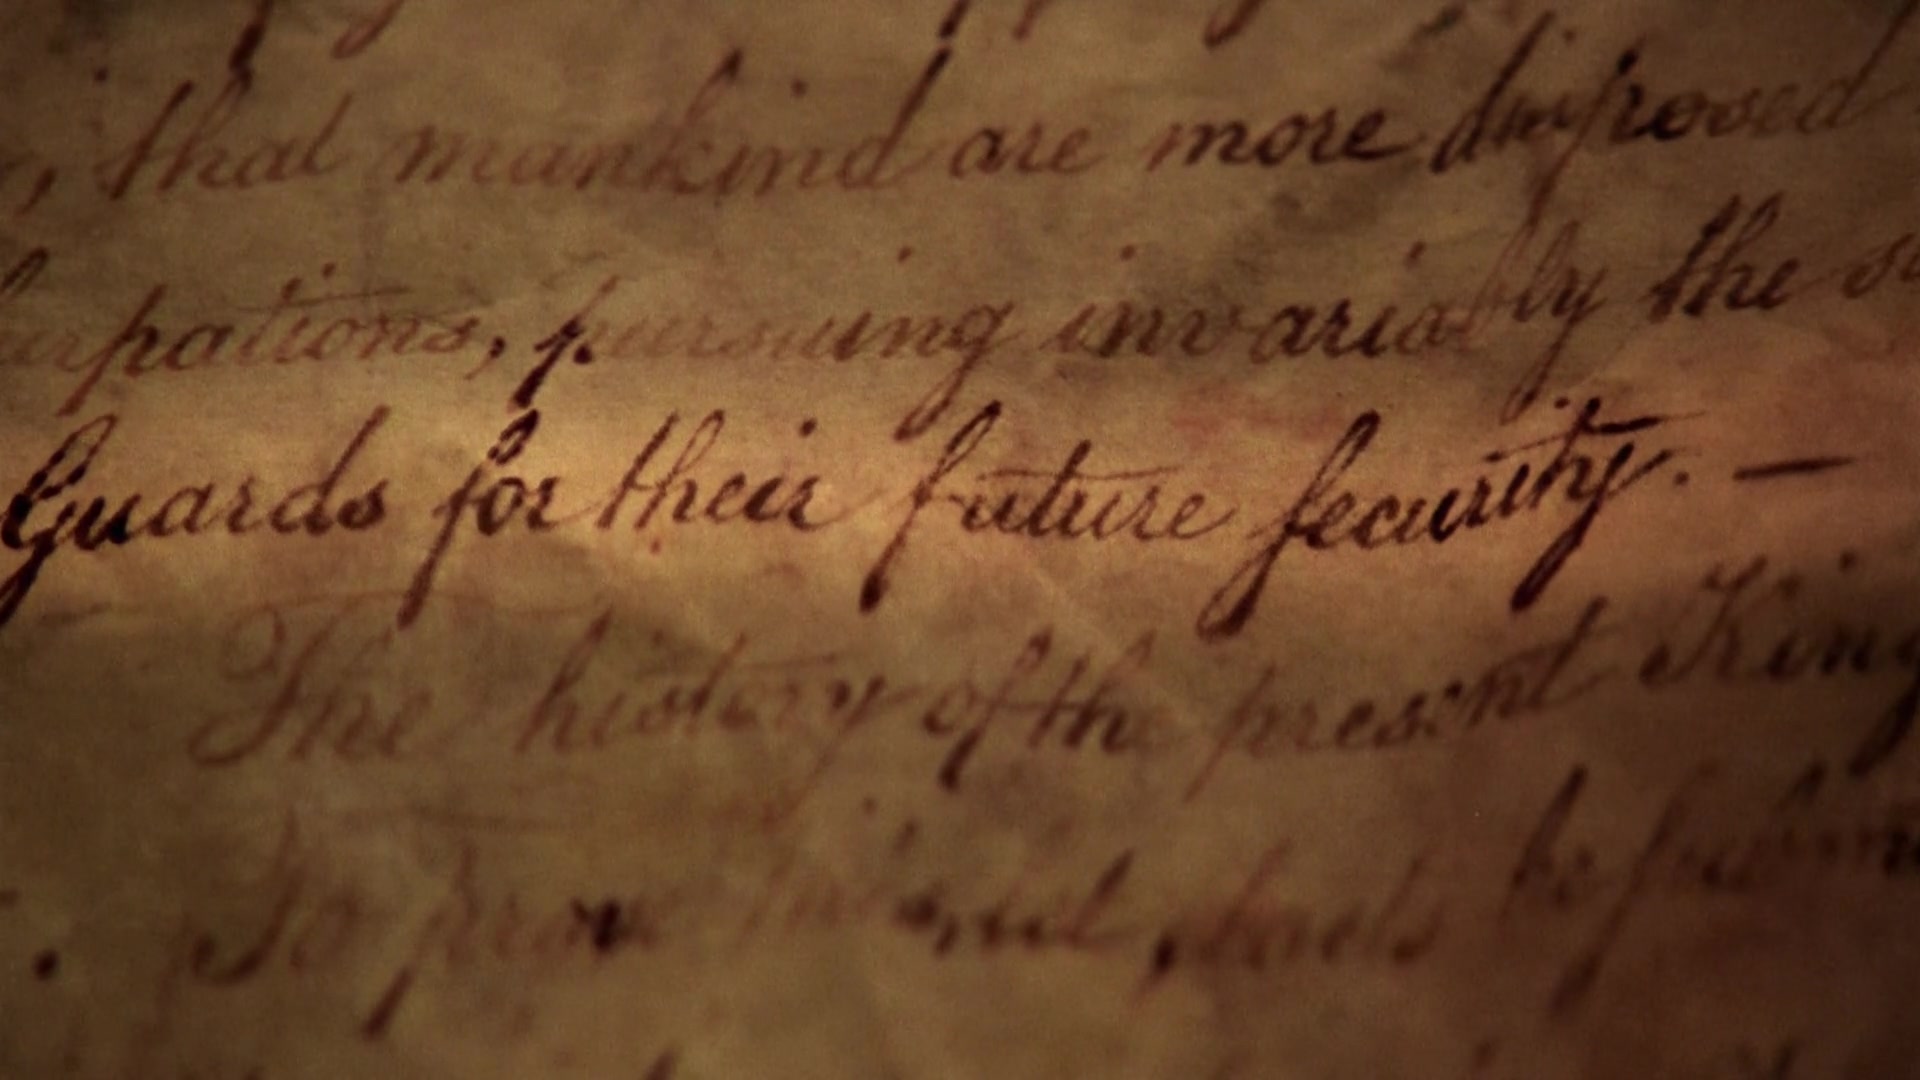 , that mankind are more disposed
urpations, pursuing invariably the
Guards for their future security. —
The history of the present King
To prove